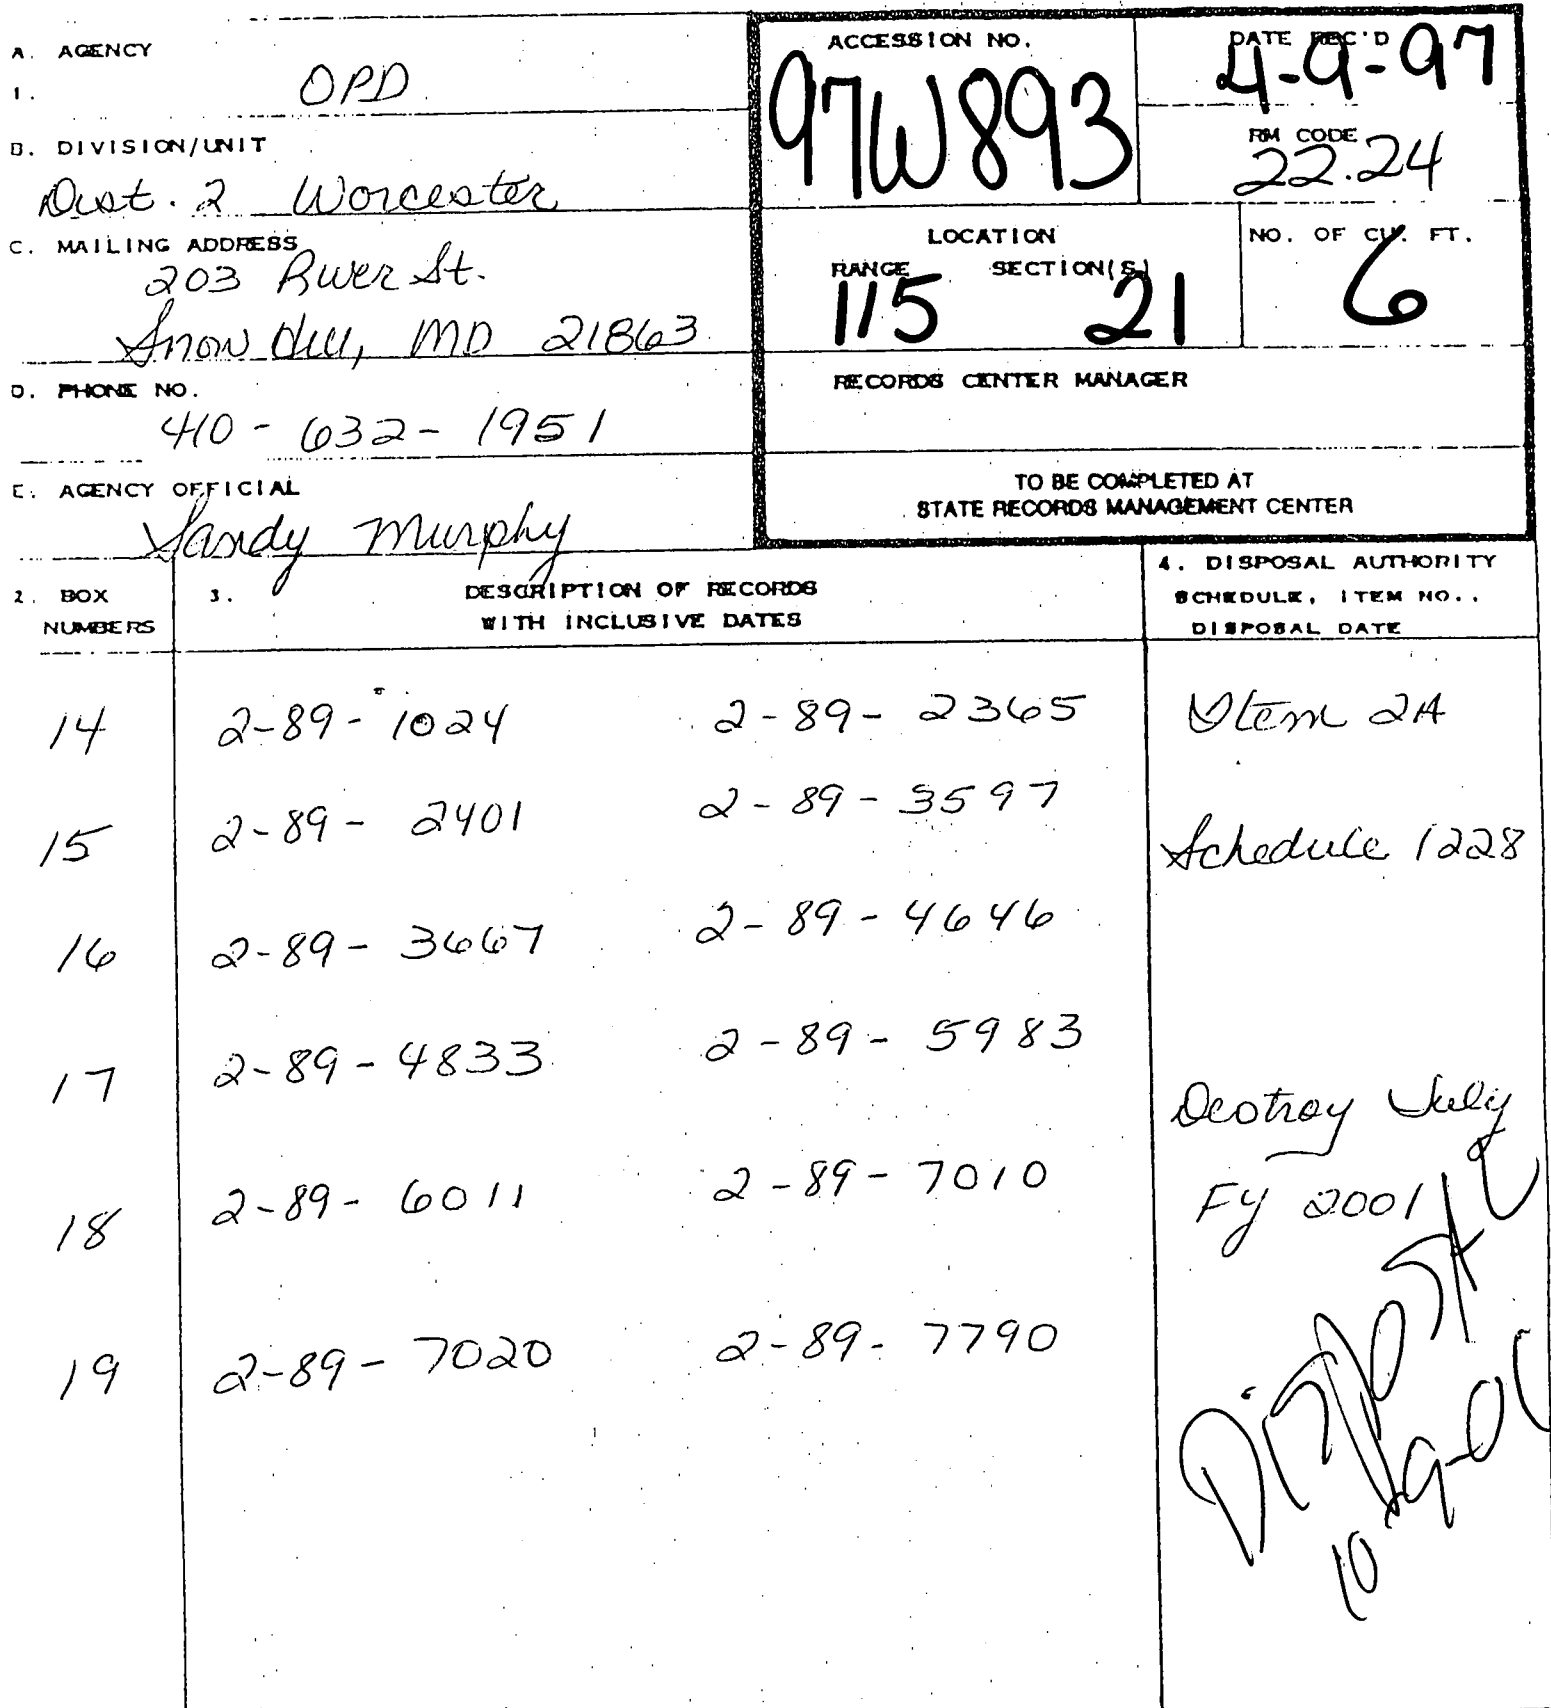 A. AGENCY
1. OPD
B. DIVISION/UNIT
Dist. 2 Worcester
C. MAILING ADDRESS
203 River St.
Snow Hill, MD 21863
D. PHONE NO.
410-632-1951
E. AGENCY OFFICIAL
Sandy Murphy
ACCESSION NO.
97W893
DATE REC'D
4-9-97
RM CODE
22.24
LOCATION
RANGE SECTION(S)
115 21
NO. OF CU. FT.
6
RECORDS CENTER MANAGER
TO BE COMPLETED AT
STATE RECORDS MANAGEMENT CENTER
2. BOX
NUMBERS
3. DESCRIPTION OF RECORDS
WITH INCLUSIVE DATES
4. DISPOSAL AUTHORITY
SCHEDULE, ITEM NO.,
DISPOSAL DATE
14 2-89-1024 2-89-2365 Item 2A
15 2-89-2401 2-89-3597 Schedule 1228
16 2-89-3667 2-89-4646
17 2-89-4833 2-89-5983
Destroy July
18 2-89-6011 2-89-7010 FY 2001
19 2-89-7020 2-89-7790